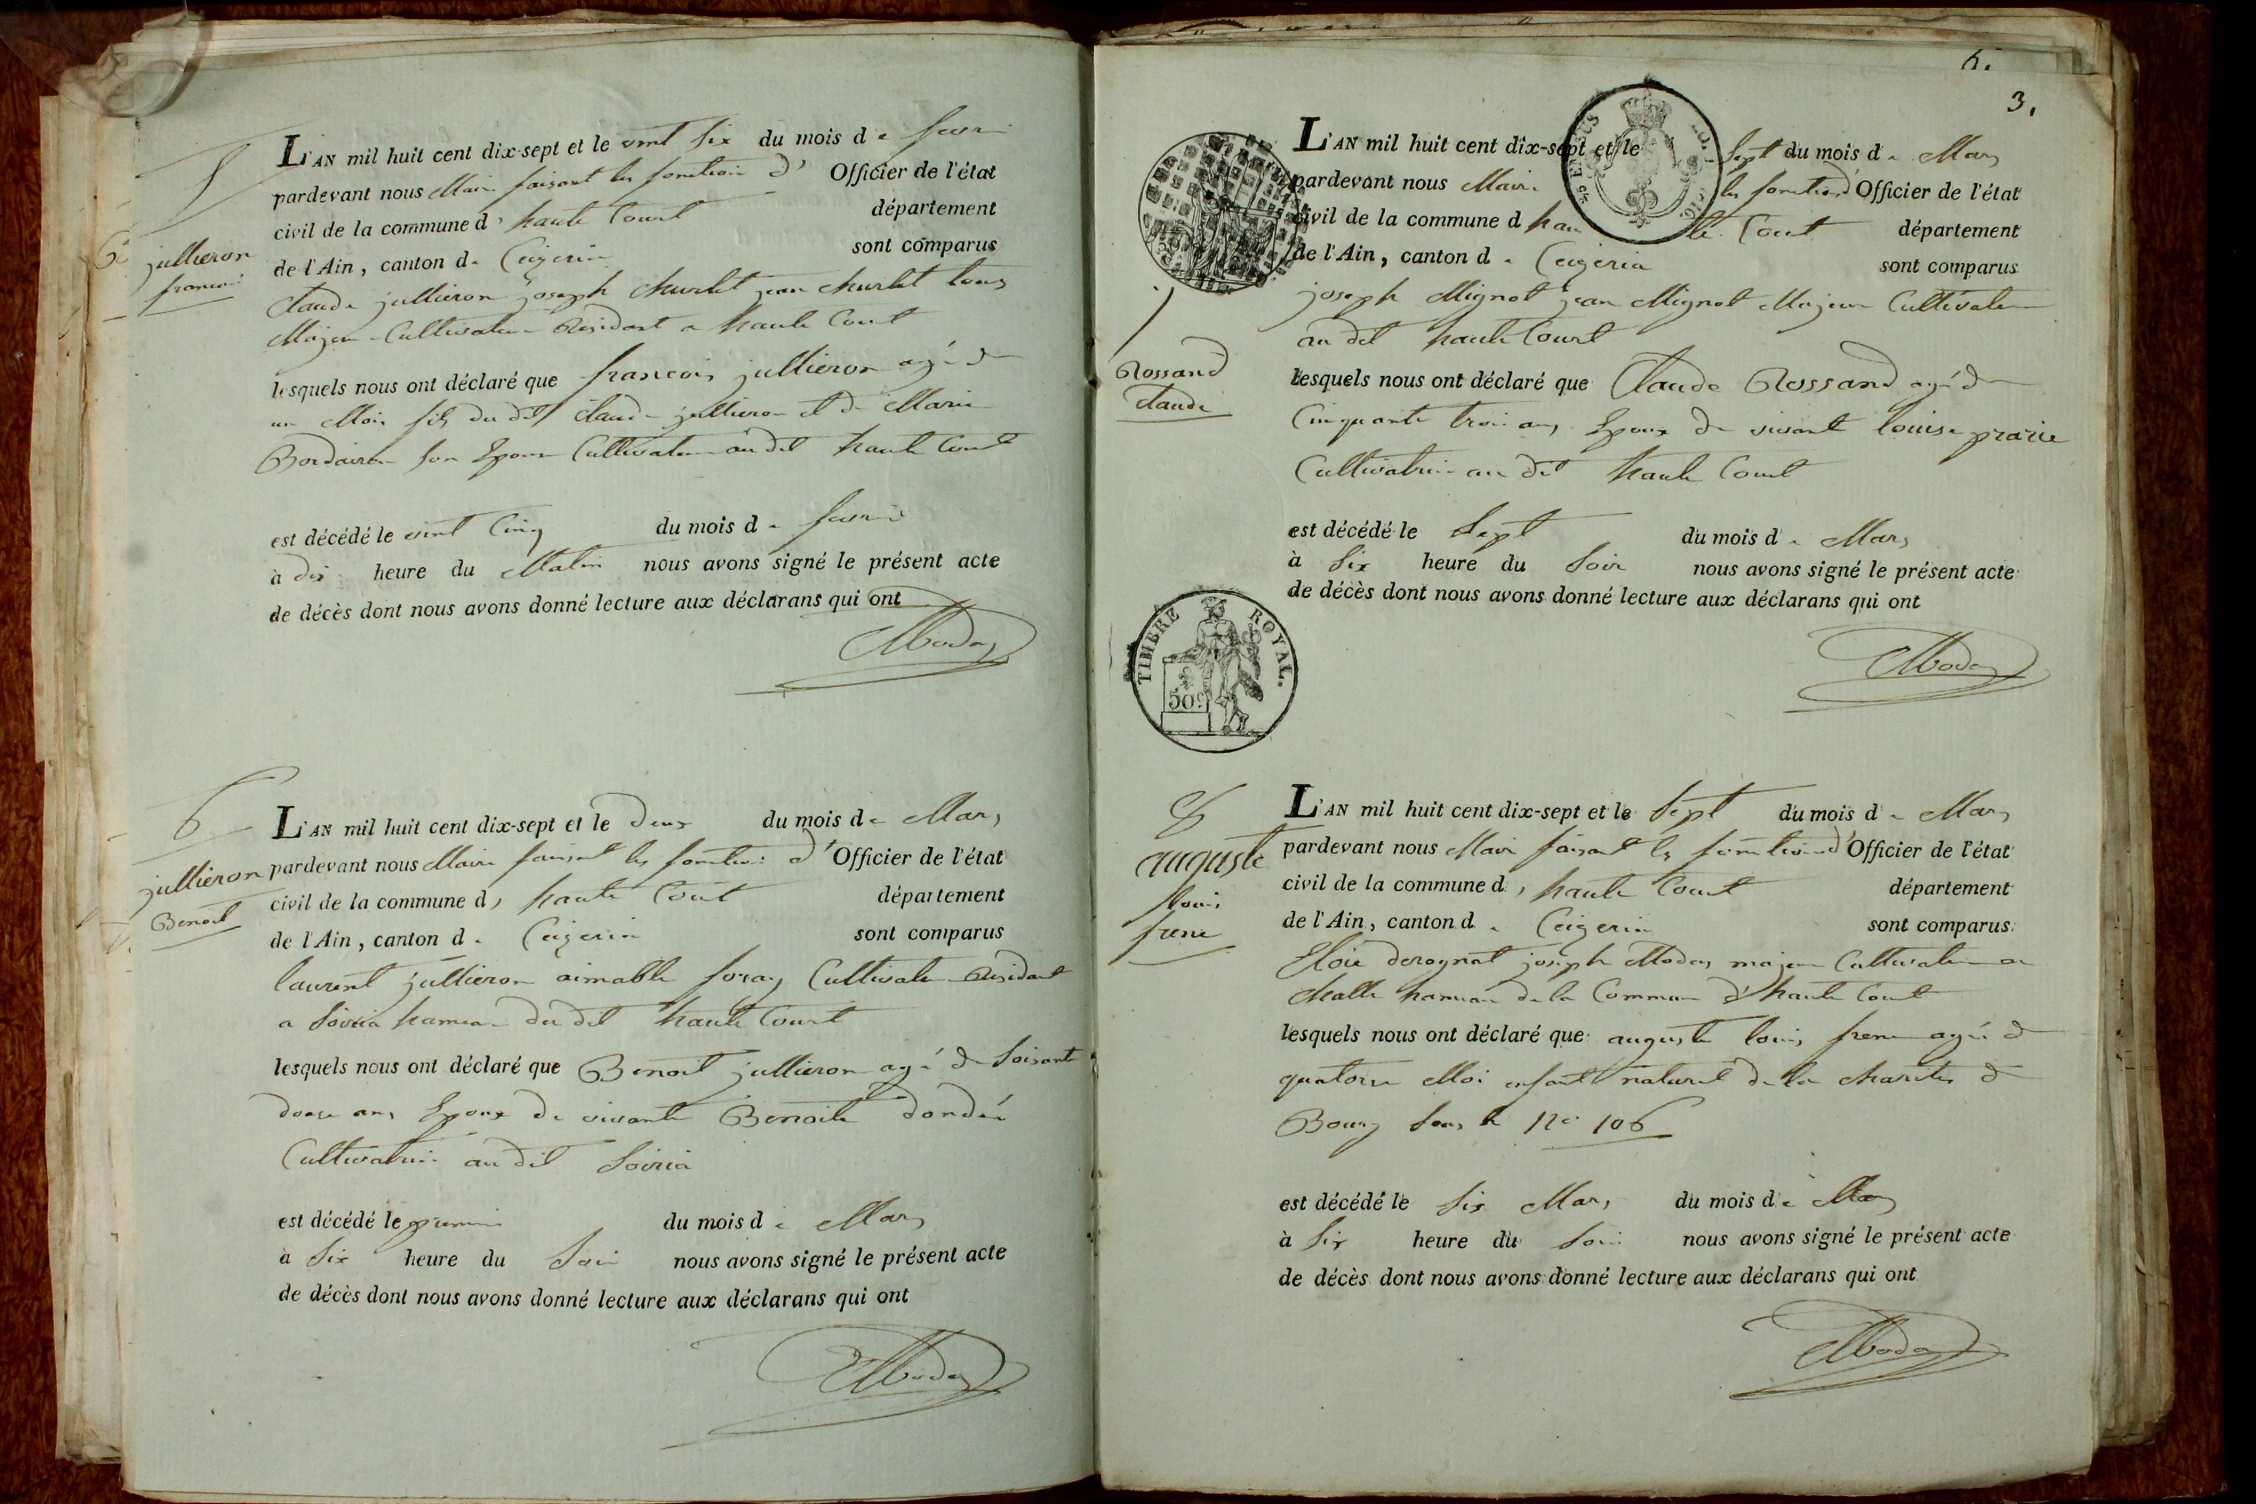 5
jullieron
francoi
L'AN mil huit cent dix-sept et le vint six du mois de fevri
pardevant nous Maire faisant les fonction d' Officier de l'état
civil de la commune d' haute Court département
de l'Ain, canton de Ceizeria sont comparus
Claude jullieron joseph Churlet jean Churlet tous
Majeur Cultivateur Residant a haute Court
lesquels nous ont déclaré que francois jullieron agé de
un Moi fils du dit Claude jullieron et de Marie
son Epouse Cultivateur au dit haute Court
est décédé le vint Cinq du mois de fevrie
à dix heure du Matin nous avons signé le présent acte
de décès dont nous avons donné lecture aux déclarans qui ont
Moda
6
jullieron
Benoit
L'AN mil huit cent dix-sept et le deux du mois de Mars
pardevant nous Maire faisant les fonction d' Officier de l'état
civil de la commune d' haute Court département
de l'Ain, canton de Ceizeria sont comparus
laurent jullieron aimable foray Cultivateur Residant
a Soiria hameau du dit haute Court
lesquels nous ont déclaré que Benoit jullieron agé de Soisante
douze ans Epoux de vivante Benoite dondée
Cultivatrice au dit Soiria
est décédé le premier du mois de Mars
à Six heure du Soir nous avons signé le présent acte
de décès dont nous avons donné lecture aux déclarans qui ont
Moda
5.
3.
Rossand
Claude
L'AN mil huit cent dix-sept et le Sept du mois de Mars
pardevant nous Maire les fonction d' Officier de l'état
civil de la commune d hau te Court département
de l'Ain, canton de Ceizeria sont comparus
joseph Mignot jean Mignot Majeur Cultivateur
au dit haute Court
lesquels nous ont déclaré que Claude Rossand agé de
Cinquante trois ans Epoux de vivante louise prarie
Cultivatrice au dit haute Court
est décédé le Sept du mois de Mars
à Six heure du Soir nous avons signé le présent acte
de décès dont nous avons donné lecture aux déclarans qui ont
TIMBRE ROYAL.
50c
Moda
8
auguste
louis
frene
L'AN mil huit cent dix-sept et le Sept du mois de Mars
pardevant nous Maire faisant les fonction d' Officier de l'état
civil de la commune d' haute Court département
de l'Ain, canton de Ceizeria sont comparus
Eloie derognat joseph Modas majeur Cultivateur a
Challe hameau de la Commune d' haute Court
lesquels nous ont déclaré que auguste louis frene agé de
quatorze Moi enfant naturel de la charitée de
Bourg Sous le No 106
est décédé le Six Mars du mois de Mars
à Six heure du Soir nous avons signé le présent acte
de décès dont nous avons donné lecture aux déclarans qui ont
Moda